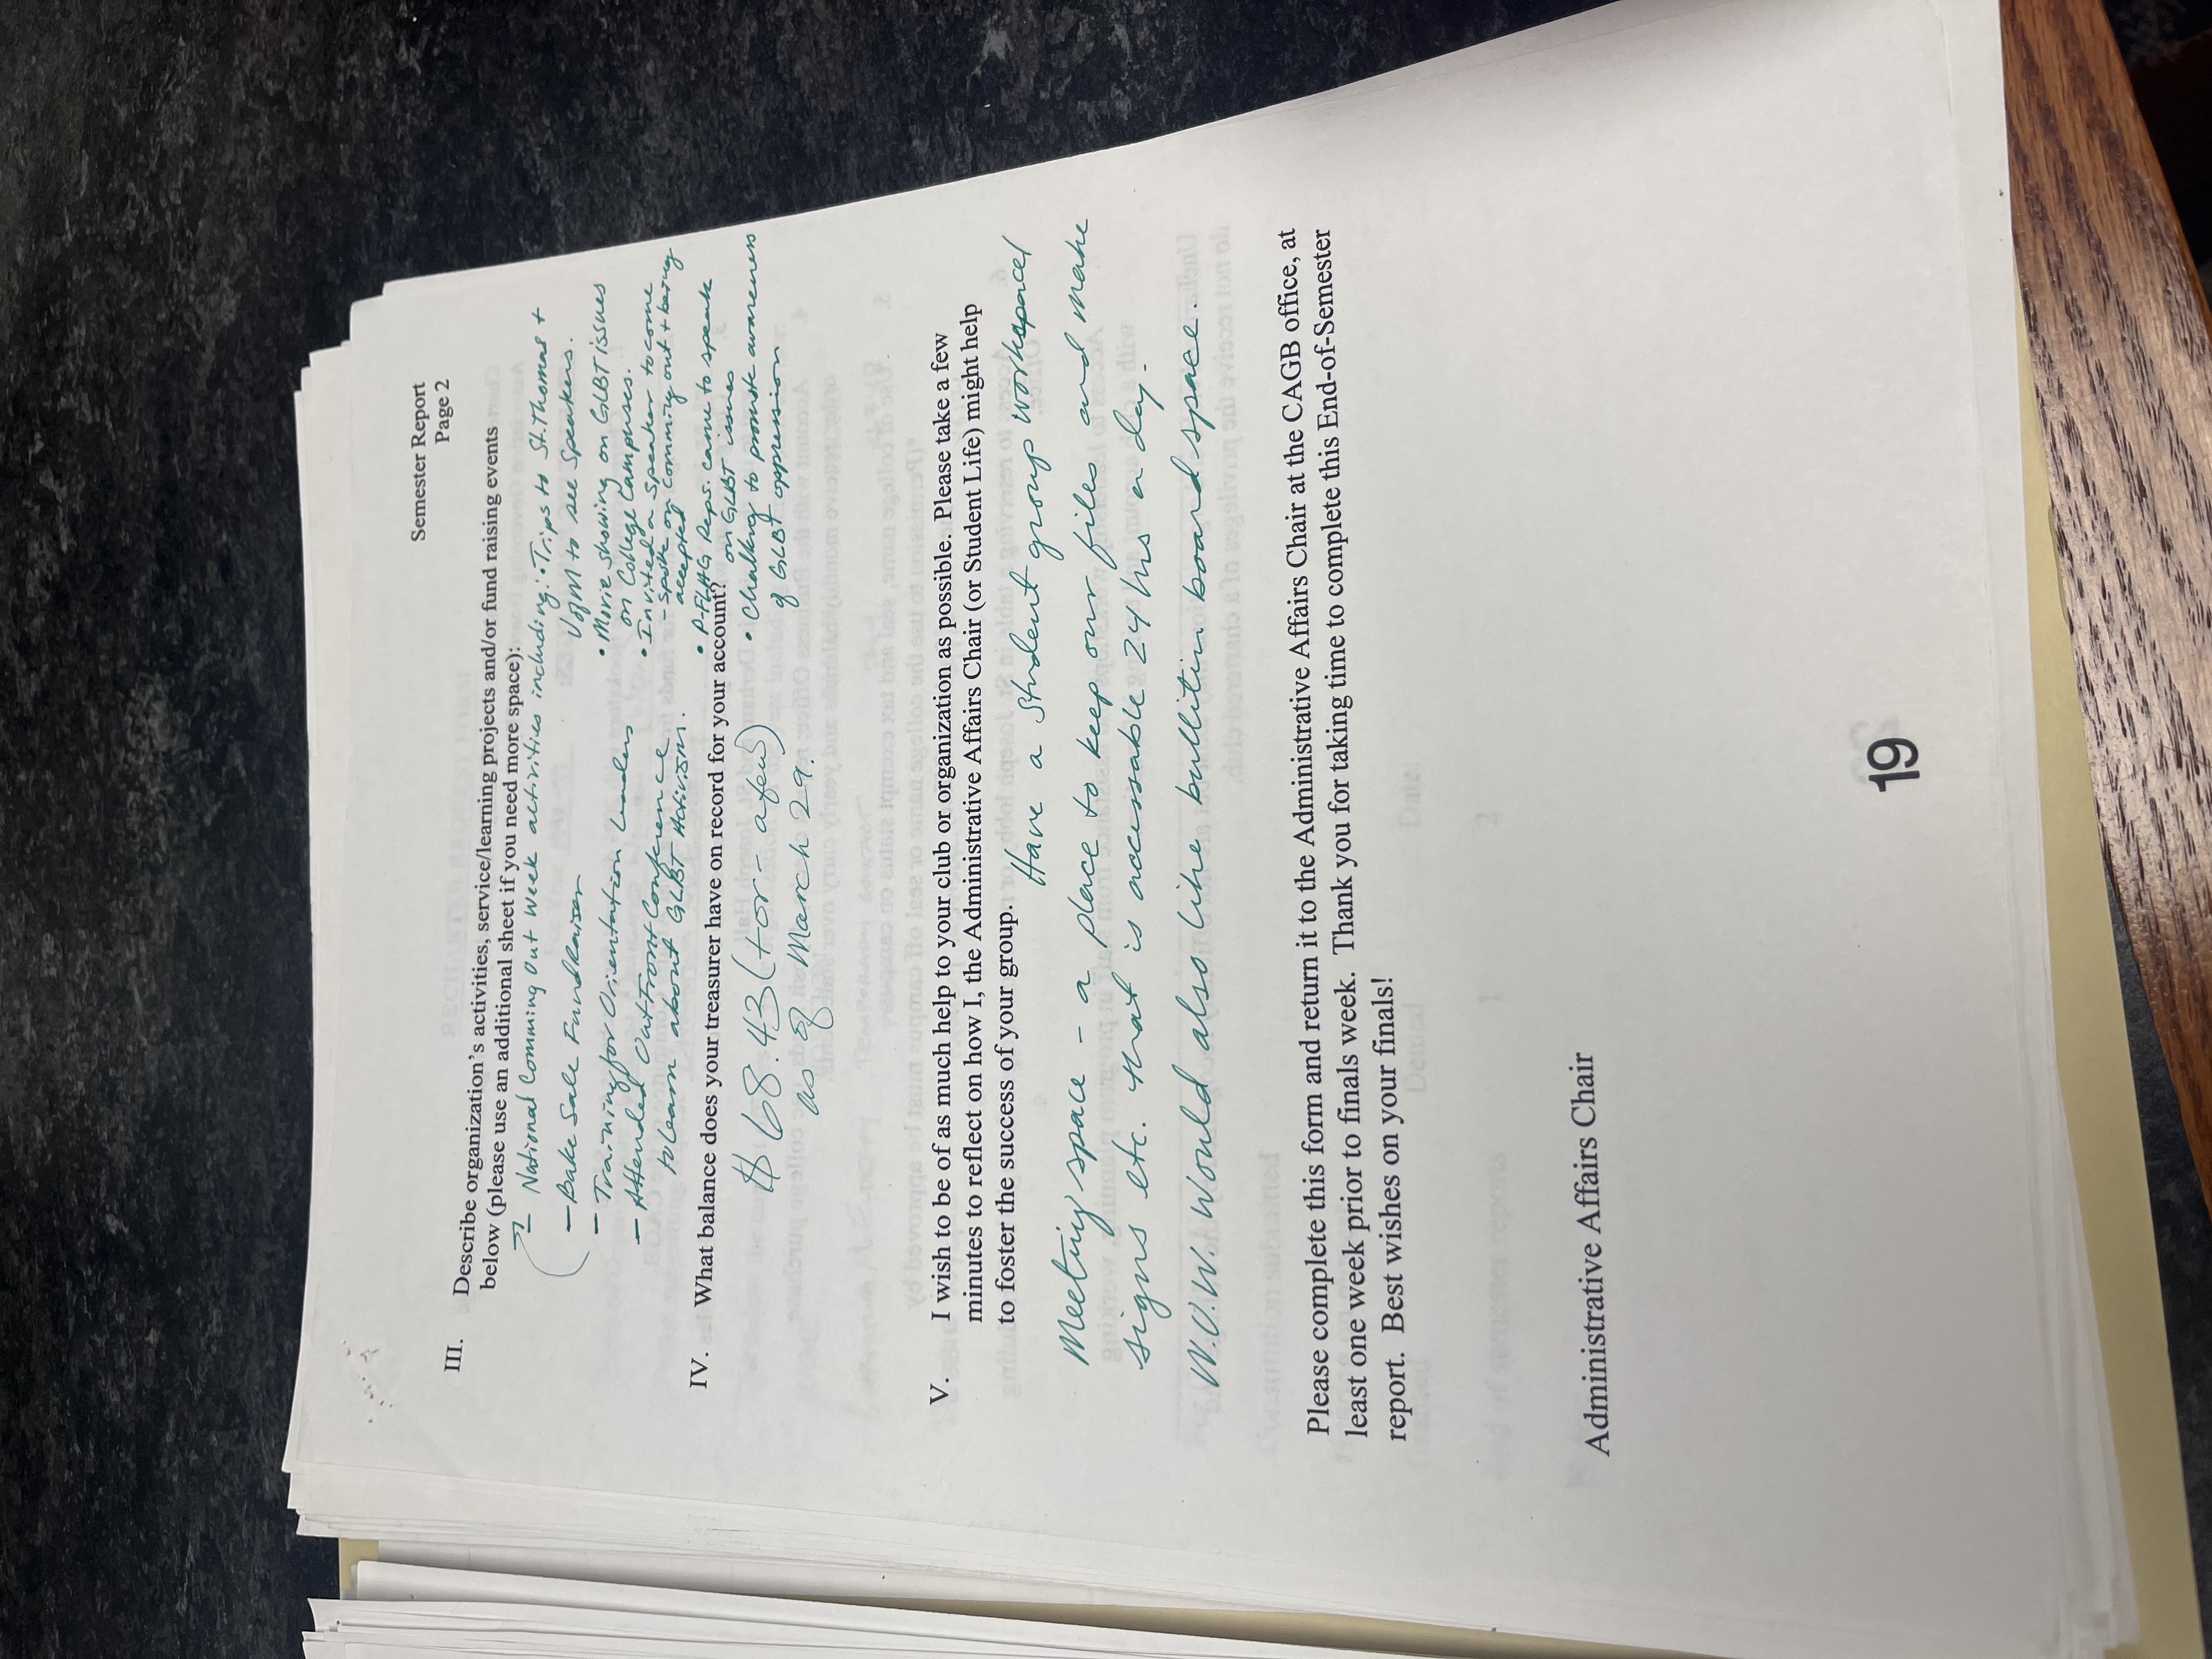 Semester Report
Page 2
III. Describe organization's activities, service/learning projects and/or fund raising events
below (please use an additional sheet if you need more space):
- National Comming Out Week activities including: • Trips to St. Thomas +
U of M to see Speakers.
• Movie showing on GLBT issues
on College Campuses.
• Invited a speaker to come
- spoke on comming out + being
accepted
• P-FLAG Reps. came to speak
on GLBT issues
• Chalking to promote awareness
of GLBT oppression
- Bake Sale FundRaiser
- Training for Orientation Leaders
- Attended OutFront Conference
to learn about GLBT Activism.
IV. What balance does your treasurer have on record for your account?
$68.43 (+ or - a few)
as of March 29.
V. I wish to be of as much help to your club or organization as possible. Please take a few
minutes to reflect on how I, the Administrative Affairs Chair (or Student Life) might help
to foster the success of your group.
Have a student group workspace/
Meeting space - a place to keep our files and make
signs etc. that is accessable 24 hrs a day.
W.O.W. Would also like bullitin board space.
Please complete this form and return it to the Administrative Affairs Chair at the CAGB office, at
least one week prior to finals week. Thank you for taking time to complete this End-of-Semester
report. Best wishes on your finals!
Administrative Affairs Chair
19